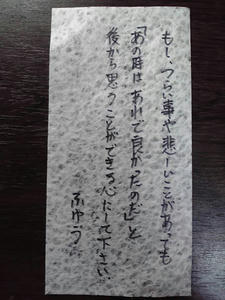 もし、つらい事や悲しいことがあっても
「あの時はあれで良かったのだ」と
後から思うことができる心にして下さい。
ふゆう